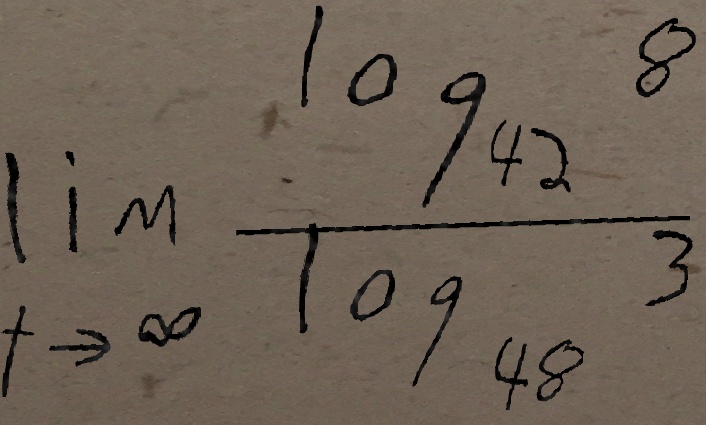 lim_{t→∞} \frac{log_{42} 8}{log_{48} 3}